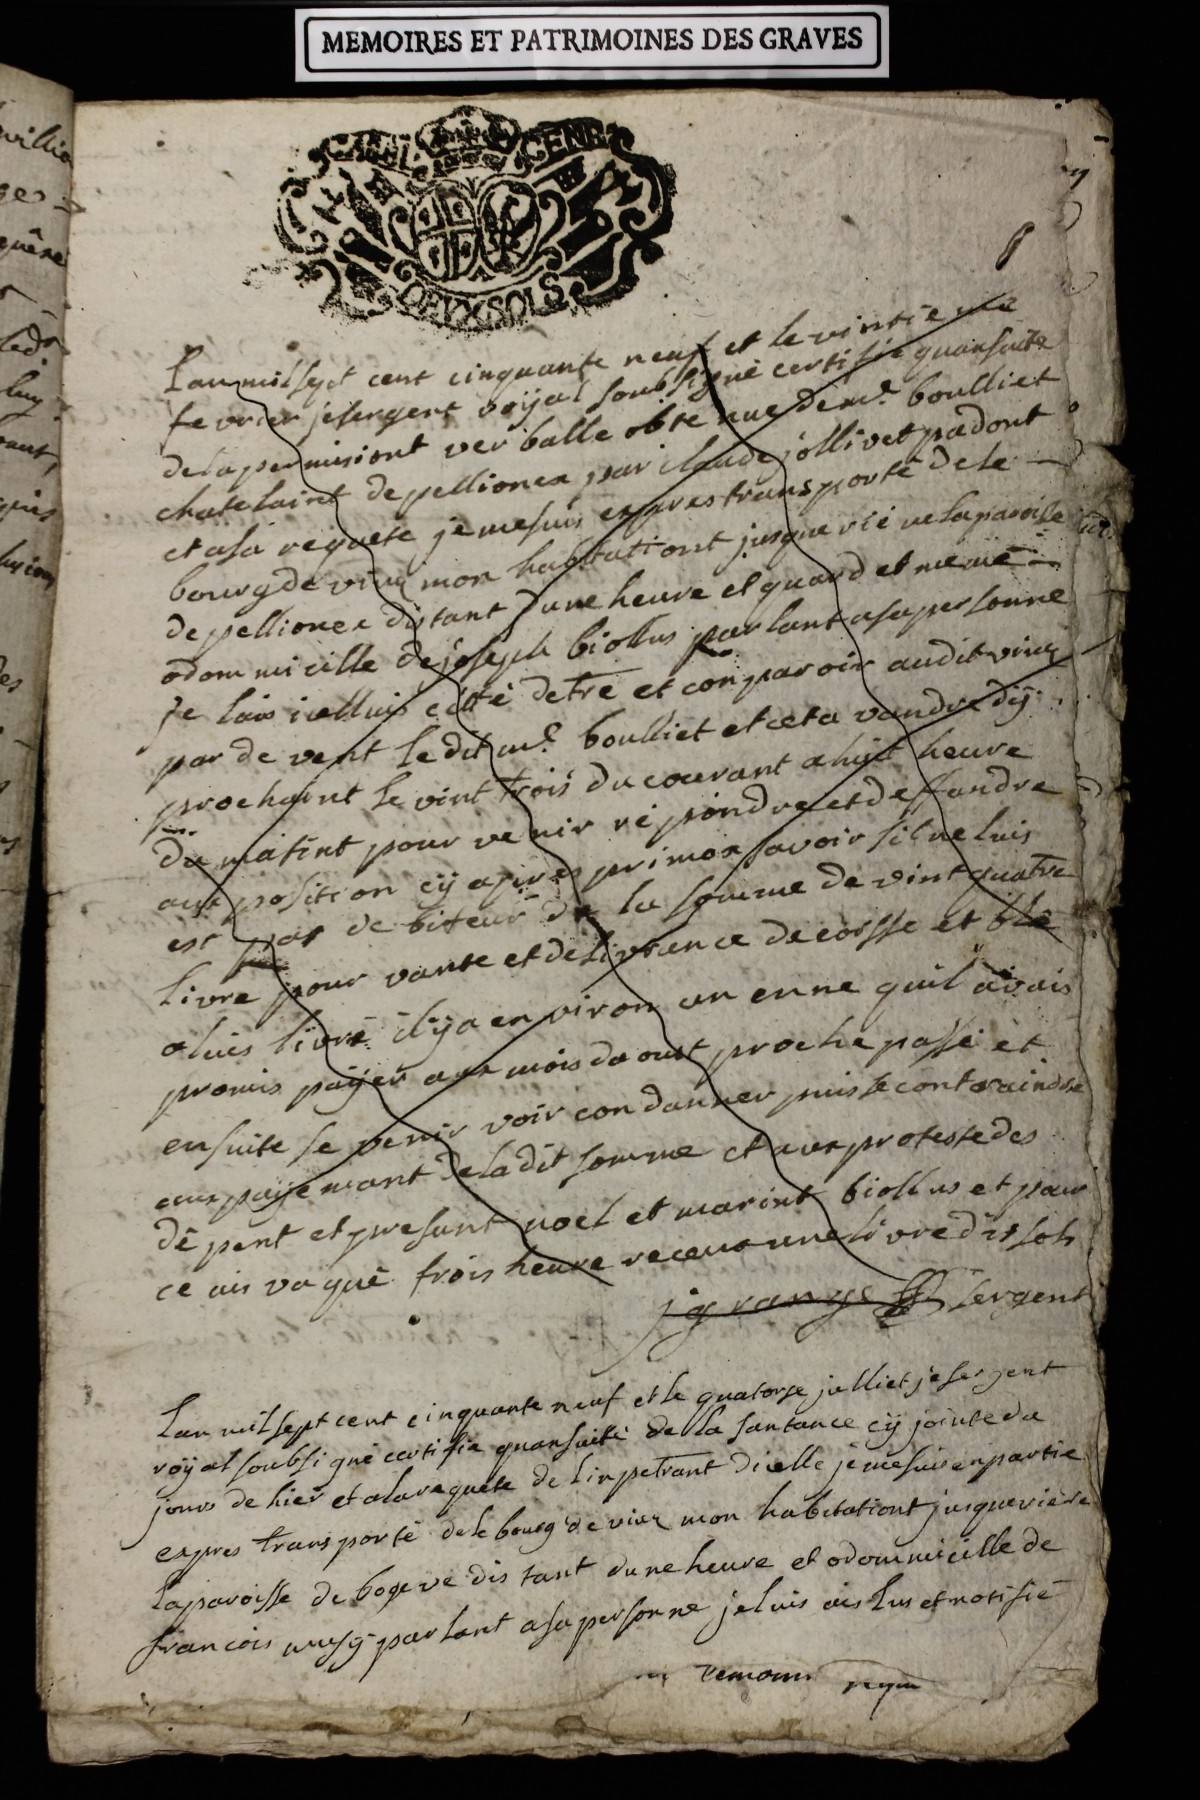 MEMOIRES ET PATRIMOINES DES GRAVES
GENE
DEUX SOLS
Lan mil sept cent cinquante neuf et le vintiè me
fevrier je sergent royal soubsigné certifie quansuitte
de la permisiont ver balle obte nue de mr. boulliet
chatelaint de pellionex par claude jollivet padont
et asa requete je me suis expres transporté de le
bourg de viuz mon habitationt jusque riè re la paroisse
de pellionex distant dune heure et quard et meme
odommicille de joseph biollus parlant a sa personne
je lais icelluis citté detre et conparoir audit viuz
par de vent le dit mr. boulliet et ceta vandre dÿ
prochaint le vint trois du courant a huit heure
du matint pour ve nir ré pondre et de ffandre
aux position cÿ apres primox savoir sil ne luis
est pas de biteur de la somme de vint quatre
livre pour vante et delivrance de corsse et blé
a luis livré ilÿa en viron un enne quil avais
promis paÿer aux mois da oust proche passé et
ensuite se venir voir con danner puis se contraindre
aux paÿe mant de ladit somme et aux proteste des
dé pent et presant noel et marint biollus et pour
ce ais va qué trois heure receus une livre dis sols
j grange sergent
Lan mil sept cent cinquante neuf et le quatorse julliet je sergent
roÿal soubsi gné certifie quansuite de la santance cÿ jointe du
jour de hier et a la requete de linpetrant dicelle je me suis en partie
expres trans porté de le bourg de viuz mon habitationt jusque rière
la paroisse de bogeve dis tant dune heure et odommicille de
francois parlant a sa personne je luis ais lus et notifié